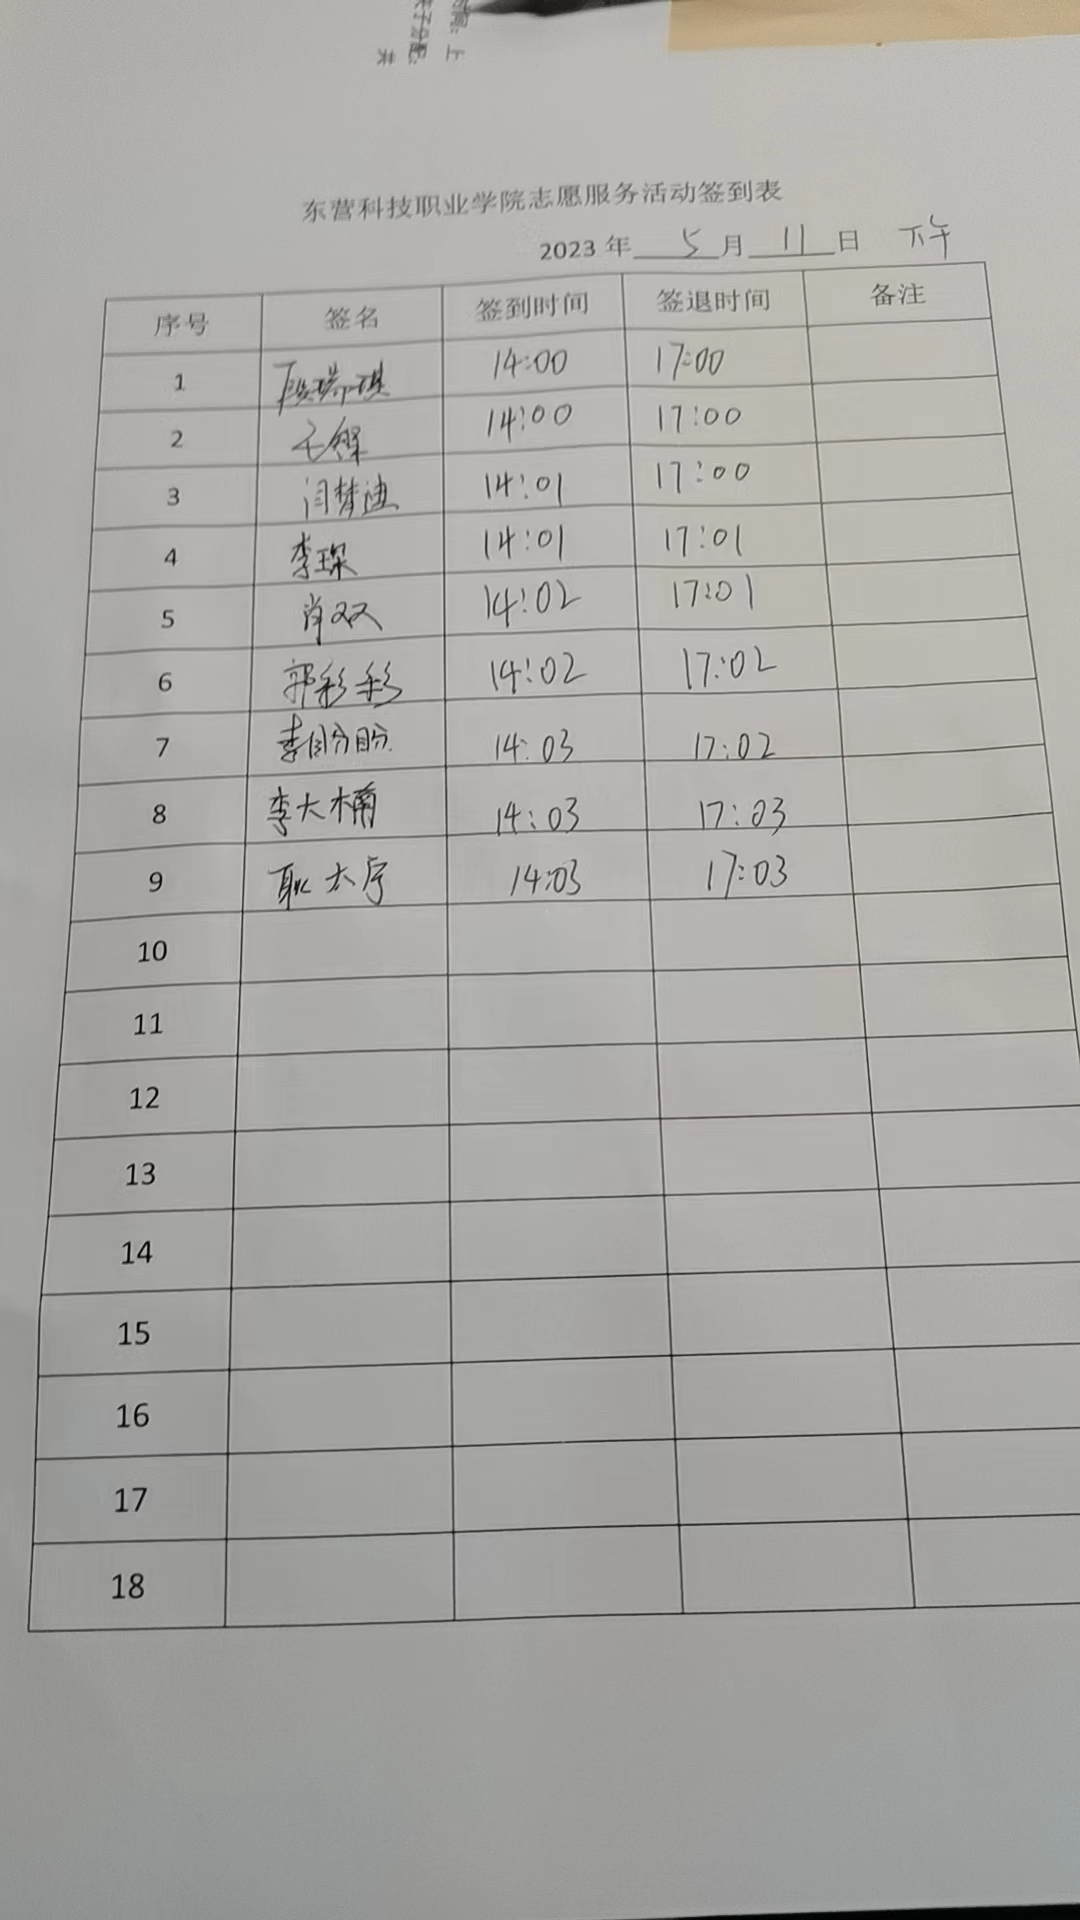 东营科技职业学院志愿服务活动签到表
2023 年 5 月 11 日 下午
序号 签名 签到时间 签退时间 备注
1 段瑞琪 14:00 17:00
2 14:00 17:00
3 闫梦迪 14:01 17:00
4 李琛 14:01 17:01
5 肖双 14:02 17:01
6 郭彩彩 14:02 17:02
7 李盼盼 14:03 17:02
8 李大楠 14:03 17:03
9 耿太宇 14:03 17:03
10
11
12
13
14
15
16
17
18